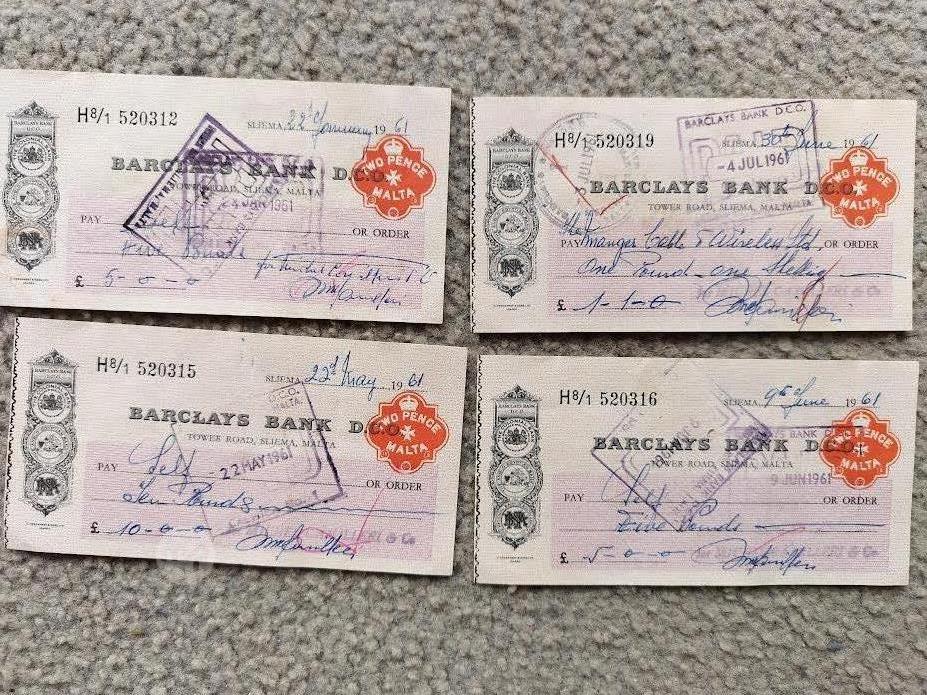 H8/1 520312
SLIEMA, 22nd January 19 61
BARCLAYS BANK D.C.O.
TOWER ROAD, SLIEMA, MALTA
24 JAN 1961
TWO PENCE
MALTA
PAY Self
OR ORDER
Five Pounds
£ 5-0-0
H8/1 520319
BARCLAYS BANK D.C.O.
SLIEMA, 30th June 19 61
-4 JUL 1961
BARCLAYS BANK D.C.O.
TOWER ROAD, SLIEMA, MALTA
TWO PENCE
MALTA
PAY The Manger Cable & Wireless Ltd
OR ORDER
One Pound - one Shelling
£ 1-1-0
H8/1 520315
SLIEMA, 22nd May 19 61
BARCLAYS BANK D.C.O.
TOWER ROAD, SLIEMA, MALTA
TWO PENCE
MALTA
PAY Self
-22 MAY 1961
OR ORDER
Ten Pounds
£ 10-0-0
H8/1 520316
SLIEMA, 9th June 19 61
BARCLAYS BANK D.C.O.
TOWER ROAD, SLIEMA, MALTA
TWO PENCE
MALTA
9 JUN 1961
PAY Self
OR ORDER
Five Pounds
£ 5-0-0